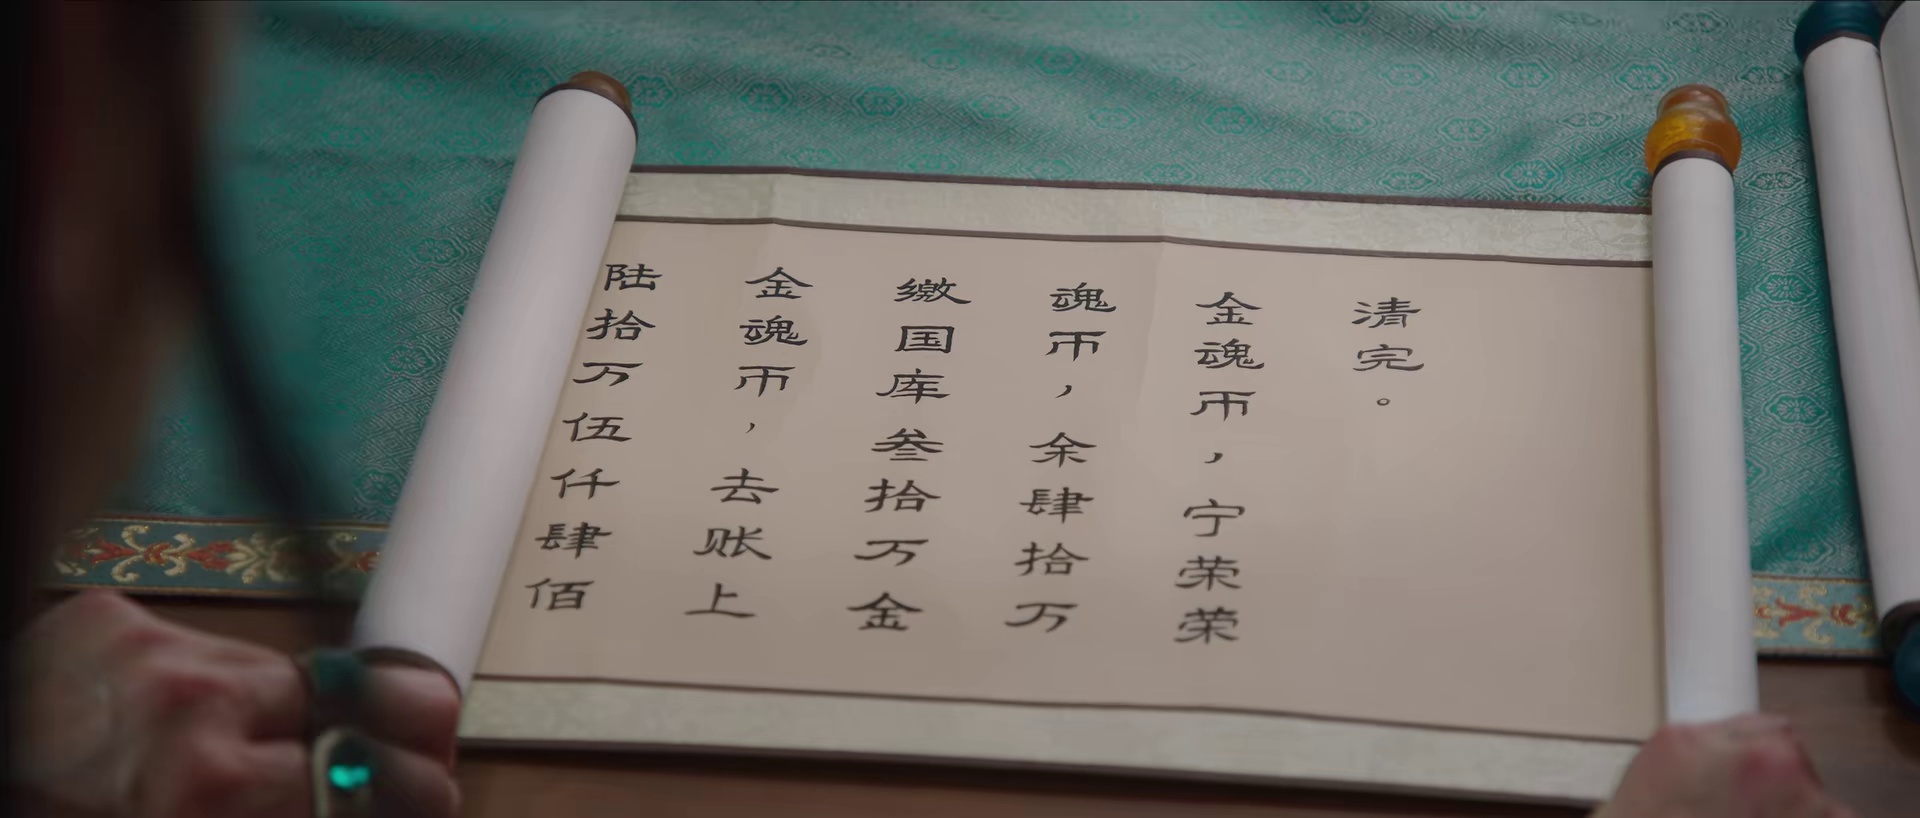 陆拾万伍仟肆佰
金魂币，去账上
缴国库叁拾万金
魂币，余肆拾万
金魂币，宁荣荣
清完。